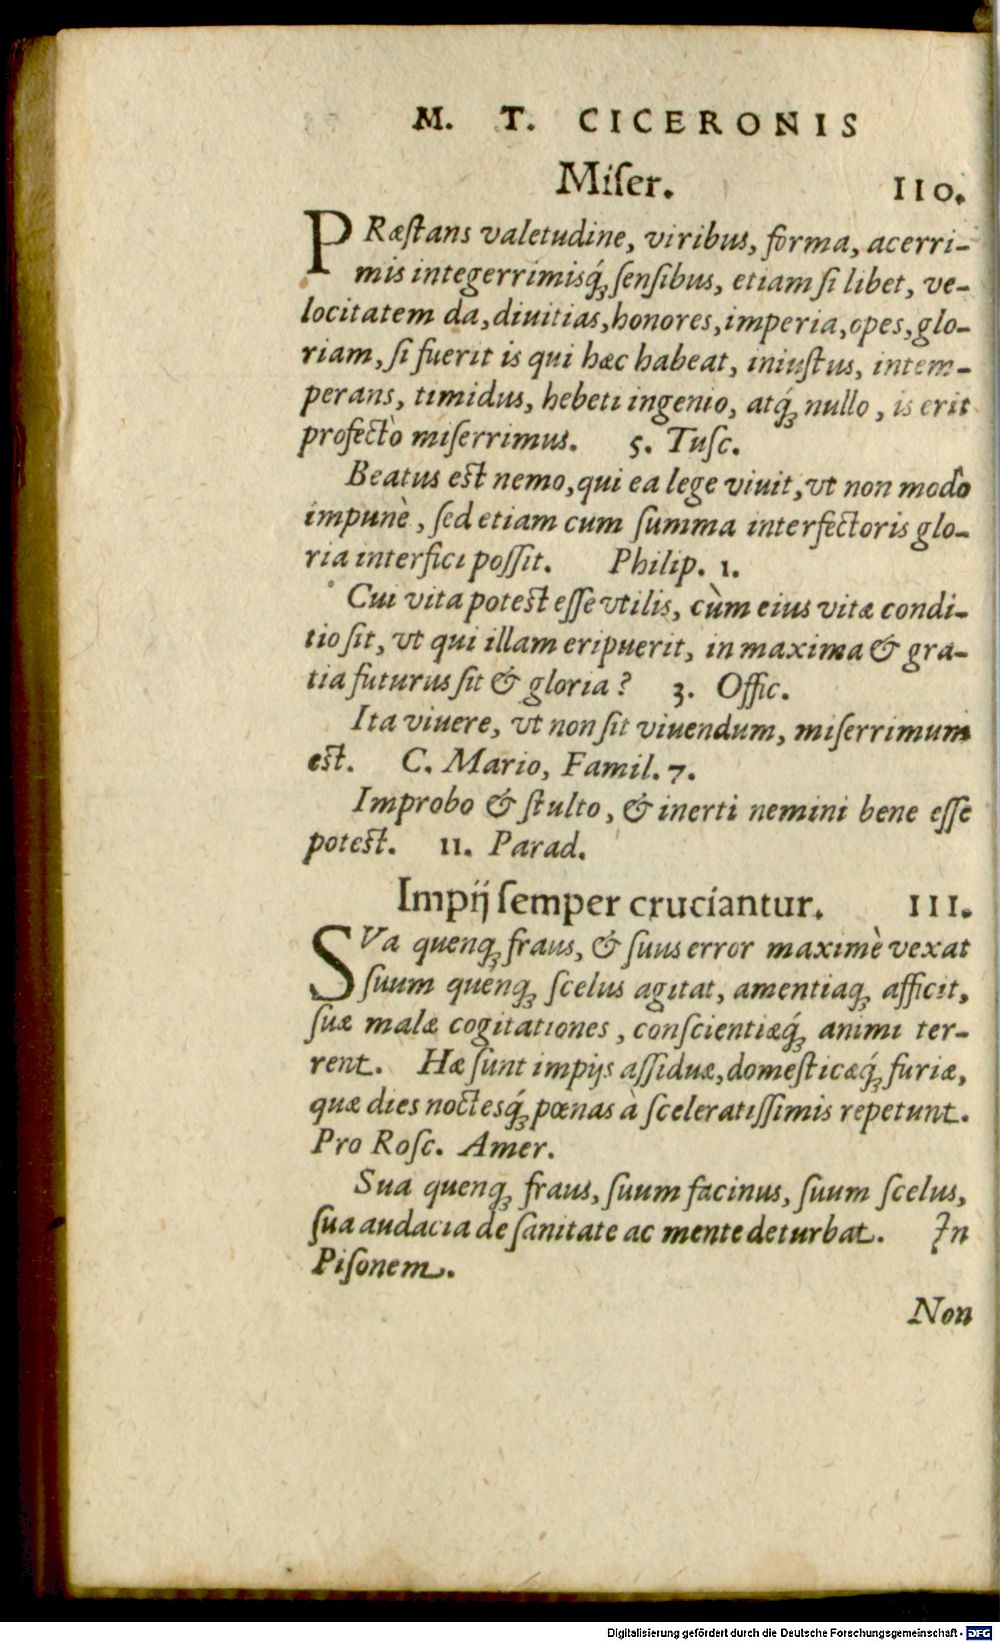 M. T. CICERONIS
Miſer. 110.
PRæſtans valetudine, viribus, forma, acerri-
mis integerrimisq́; ſenſibus, etiam ſi libet, ve-
locitatem da, diuitias, honores, imperia, opes, glo-
riam, ſi fuerit is qui hæc habeat, iniuſtus, intem-
perans, timidus, hebeti ingenio, atq́; nullo, is erit
profectò miſerrimus. 5. Tuſc.
Beatus eſt nemo, qui ea lege viuit, vt non modò
impunè, ſed etiam cum ſumma interfectoris glo-
ria interfici poſſit. Philip. 1.
Cui vita poteſt eſſe vtilis, cùm eius vitæ condi-
tio ſit, vt qui illam eripuerit, in maxima & gra-
tia futurus ſit & gloria? 3. Offic.
Ita viuere, vt non ſit viuendum, miſerrimum
eſt. C. Mario, Famil. 7.
Improbo & ſtulto, & inerti nemini bene eſſe
poteſt. 11. Parad.
Impij ſemper cruciantur. 111.
SVa quenq; fraus, & ſuus error maximè vexat
ſuum quenq; ſcelus agitat, amentiaq; afficit,
ſuæ malæ cogitationes, conſcientiæq́; animi ter-
rent. Hæ ſunt impijs aſſiduæ, domeſticæq́; furiæ,
quæ dies noctesq́; pœnas à ſceleratiſſimis repetunt.
Pro Roſc. Amer.
Sua quenq; fraus, ſuum facinus, ſuum ſcelus,
ſua audacia de ſanitate ac mente deturbat. In
Piſonem.
Non
Digitalisierung gefördert durch die Deutsche Forschungsgemeinschaft - DFG